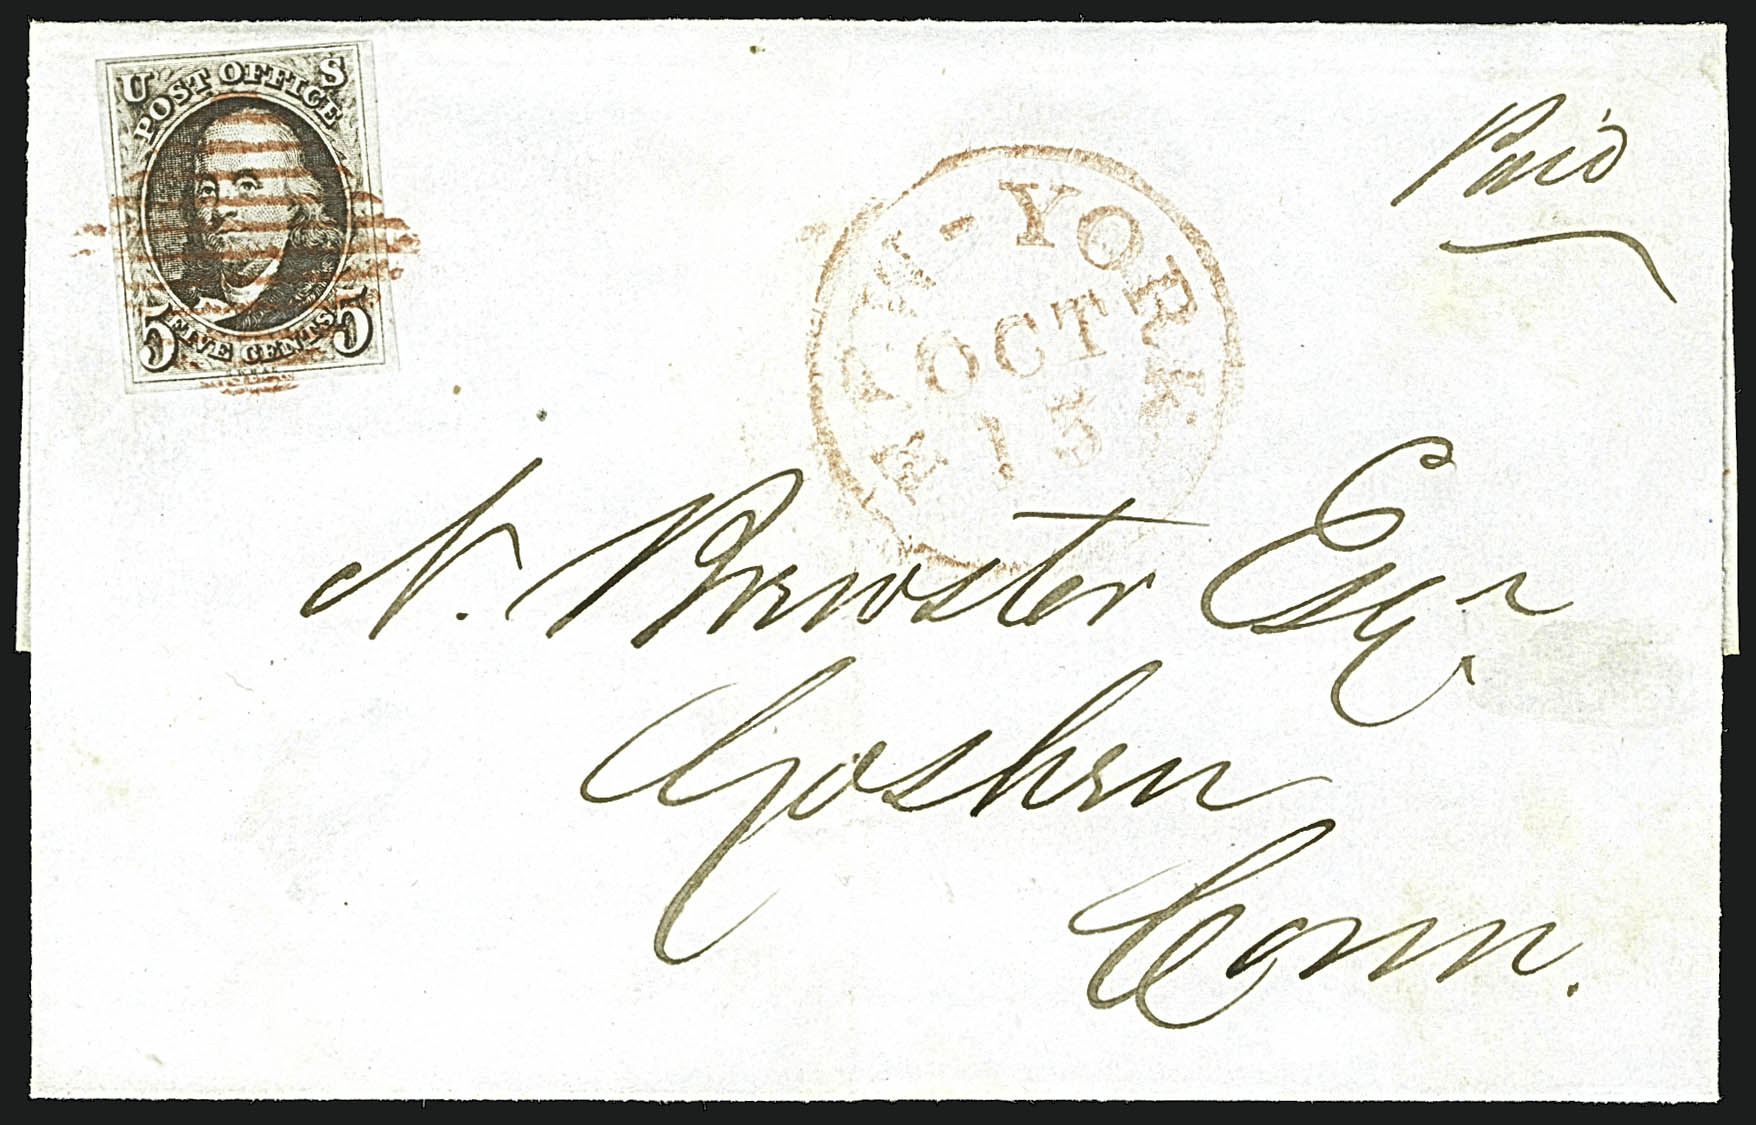 U S
POST OFFICE
5 FIVE CENTS 5
NEW-YORK
OCT
13
Paid
N. Brewster Esqr
Goshen
Conn.